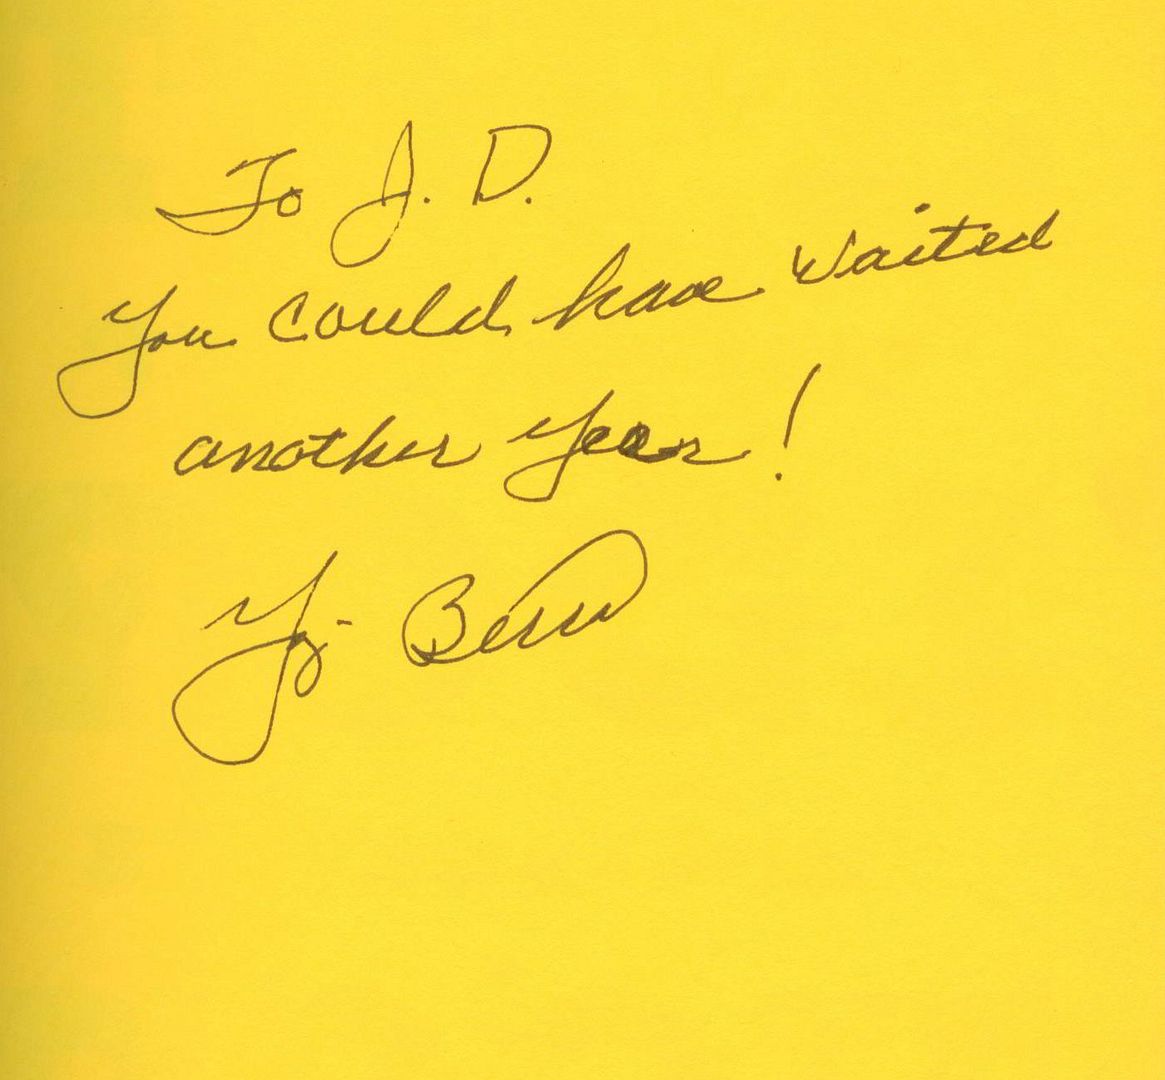 To J. D.
You could have waited
another year!
Yogi Berra